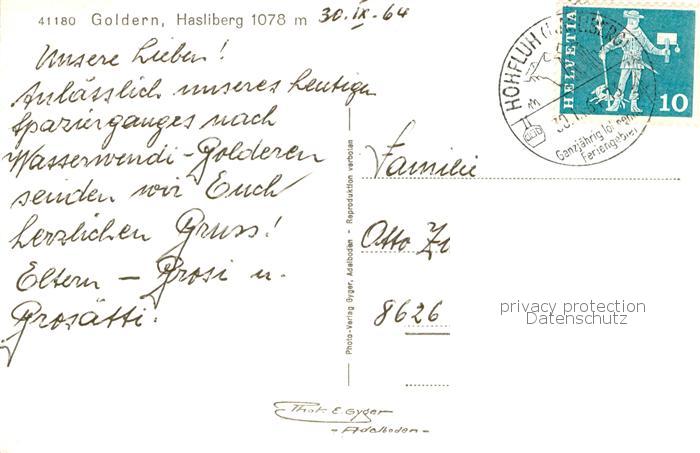 41180 Goldern, Hasliberg 1078 m 30. IX. 64
Unsere Lieben!
Anlässlich unseres heutigen
Spazierganges nach
Wasserwendi-Golderen
senden wir Euch
herzlichen Gruss!
Eltern – Grosi u.
Grosätti.
Photo-Verlag Gyger, Adelboden - Reproduktion verboten
HOHFLUH
Ganzjährig lohnendes
Feriengebiet
HELVETIA
10
Familie
Otto
8626
privacy protection
Datenschutz
Phot. E. Gyger
- Adelboden -